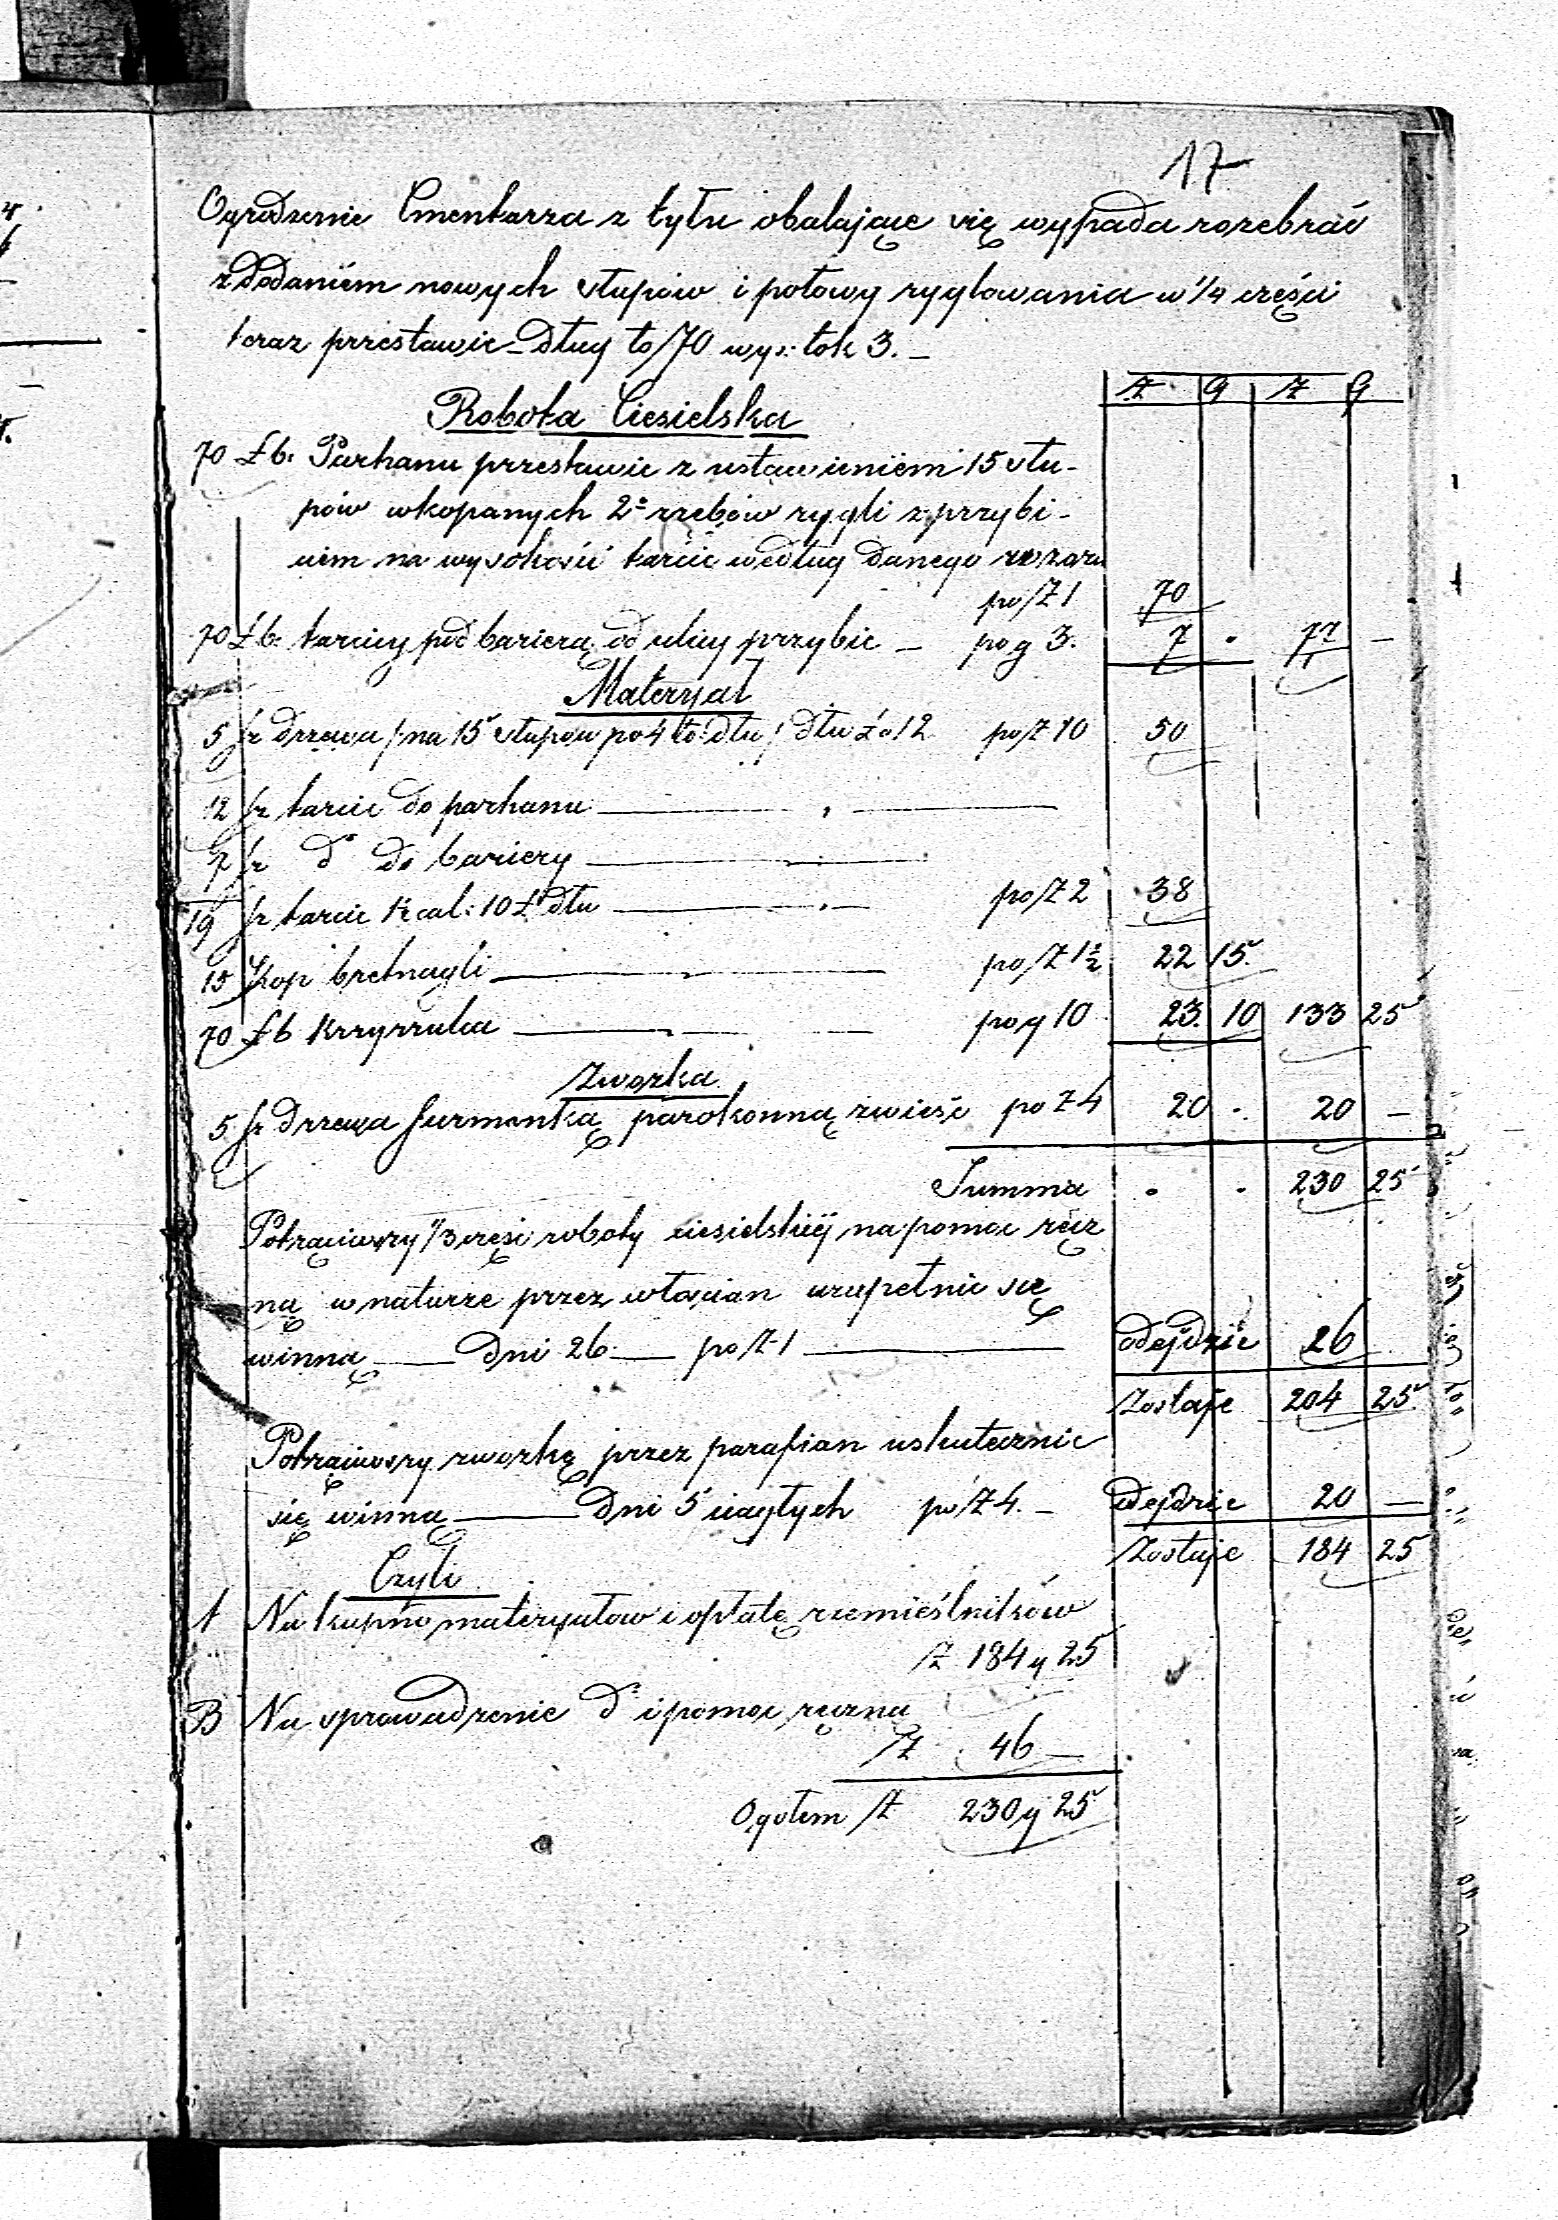 17
Ogrodzenie Cmentarza z tyłu obalające się wypada rozebrać
z dodaniem nowych słupów i połowy ryglowania w 1/4 części
teraz przestawić Długi ło 70 wys: łok 3. –
Z G Z G
Robota Ciesielska
70 Łb: Parkanu przestawić z ustawieniem 15 słu-
pów wkopanych 2ch rzebów rygli z przybi-
ciem na wysokość tarcic według danego wzoru
po Z 1 70
70 Łb: tarcicy pod barierą od ulicy przybić – po g 3. 7 . 77 –
Materyał
5 sz drzewa / na 15 słupów po 4 ło dłu / dłu Ł 12 po Z 10 50
12 sz tarcic do parkanu
7 sz do do bariery
19 sz tarcic 1½ cal: 10 Ł dłu po Z 2 38
15 kop bretnagli po Z 1½ 22 15.
70 Łb Krzyżulca po g 10 23. 10 133 25
Zwózka
5 sz drzewa furmanką parokonną zwieść po Z 4 20 . 20 –
Summa . . 230 25
Potrąciwszy 1/3 części roboty ciesielskiéj na pomoc ręcz
ną w naturze przez włościan uzupełnić się
winną — Dni 26 — po Z 1 — odejdzie 26
Zostaje 204 25
Potrąciwszy zwózkę przez parafian uskutecznić
się winną — Dni 5 ciągłych po Z 4. – odejdzie 20 —
Zostaje 184 25
Czyli
A Na kupno materyałów i opłatę rzemieślników
Z 184 g 25
B Na sprowadzenie do i pomoc ręczną
Z 46 —
Ogółem Z 230 g 25